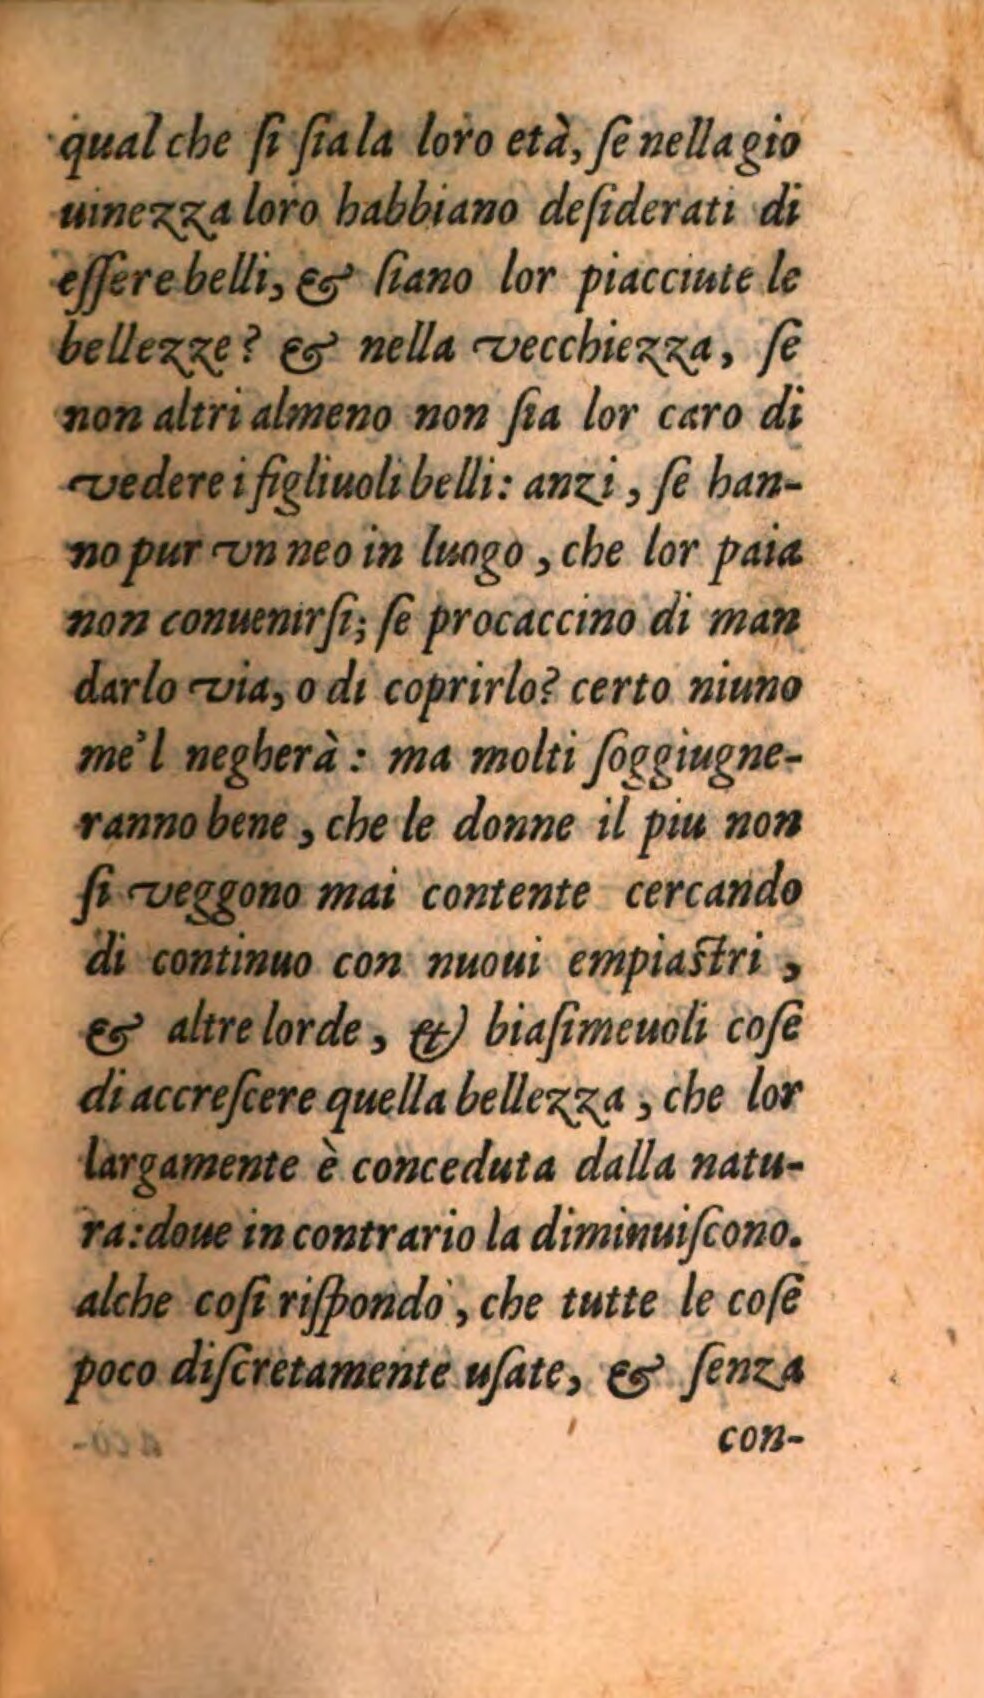 qual che ſi ſia la loro età, ſe nella gio
uinezza loro habbiano deſiderati di
eſſere belli, & ſiano lor piacciute le
bellezze? & nella vecchiezza, ſe
non altri almeno non ſia lor caro di
vedere i figliuoli belli: anzi, ſe han-
no pur vn neo in luogo, che lor paia
non conuenirſi; ſe procaccino di man
darlo via, o di coprirlo? certo niuno
me'l negherà: ma molti ſoggiugne-
ranno bene, che le donne il piu non
ſi veggono mai contente cercando
di continuo con nuoui empiaſtri,
& altre lorde, & biaſimeuoli coſe
di accreſcere quella bellezza, che lor
largamente è conceduta dalla natu-
ra: doue in contrario la diminuiſcono.
alche coſi riſpondo, che tutte le coſe
poco diſcretamente uſate, & ſenza
con-